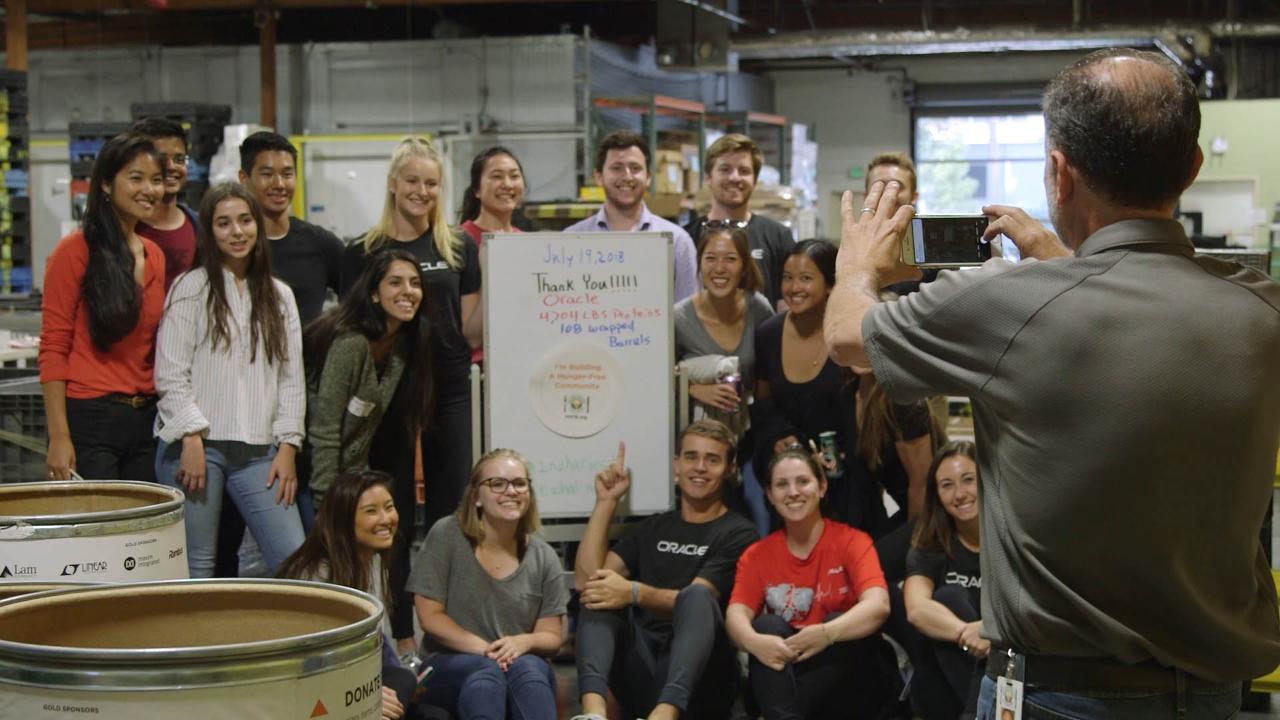 July 19, 2018
Thank You!!!!!
Oracle
4,704 LBS Proteins
108 wrapped
Barrels
I'm Building
A Hunger-Free
Community
ORACLE
GOLD SPONSORS
Lam
LINEAR
maxim
integrated
GOLD SPONSORS
DONATE